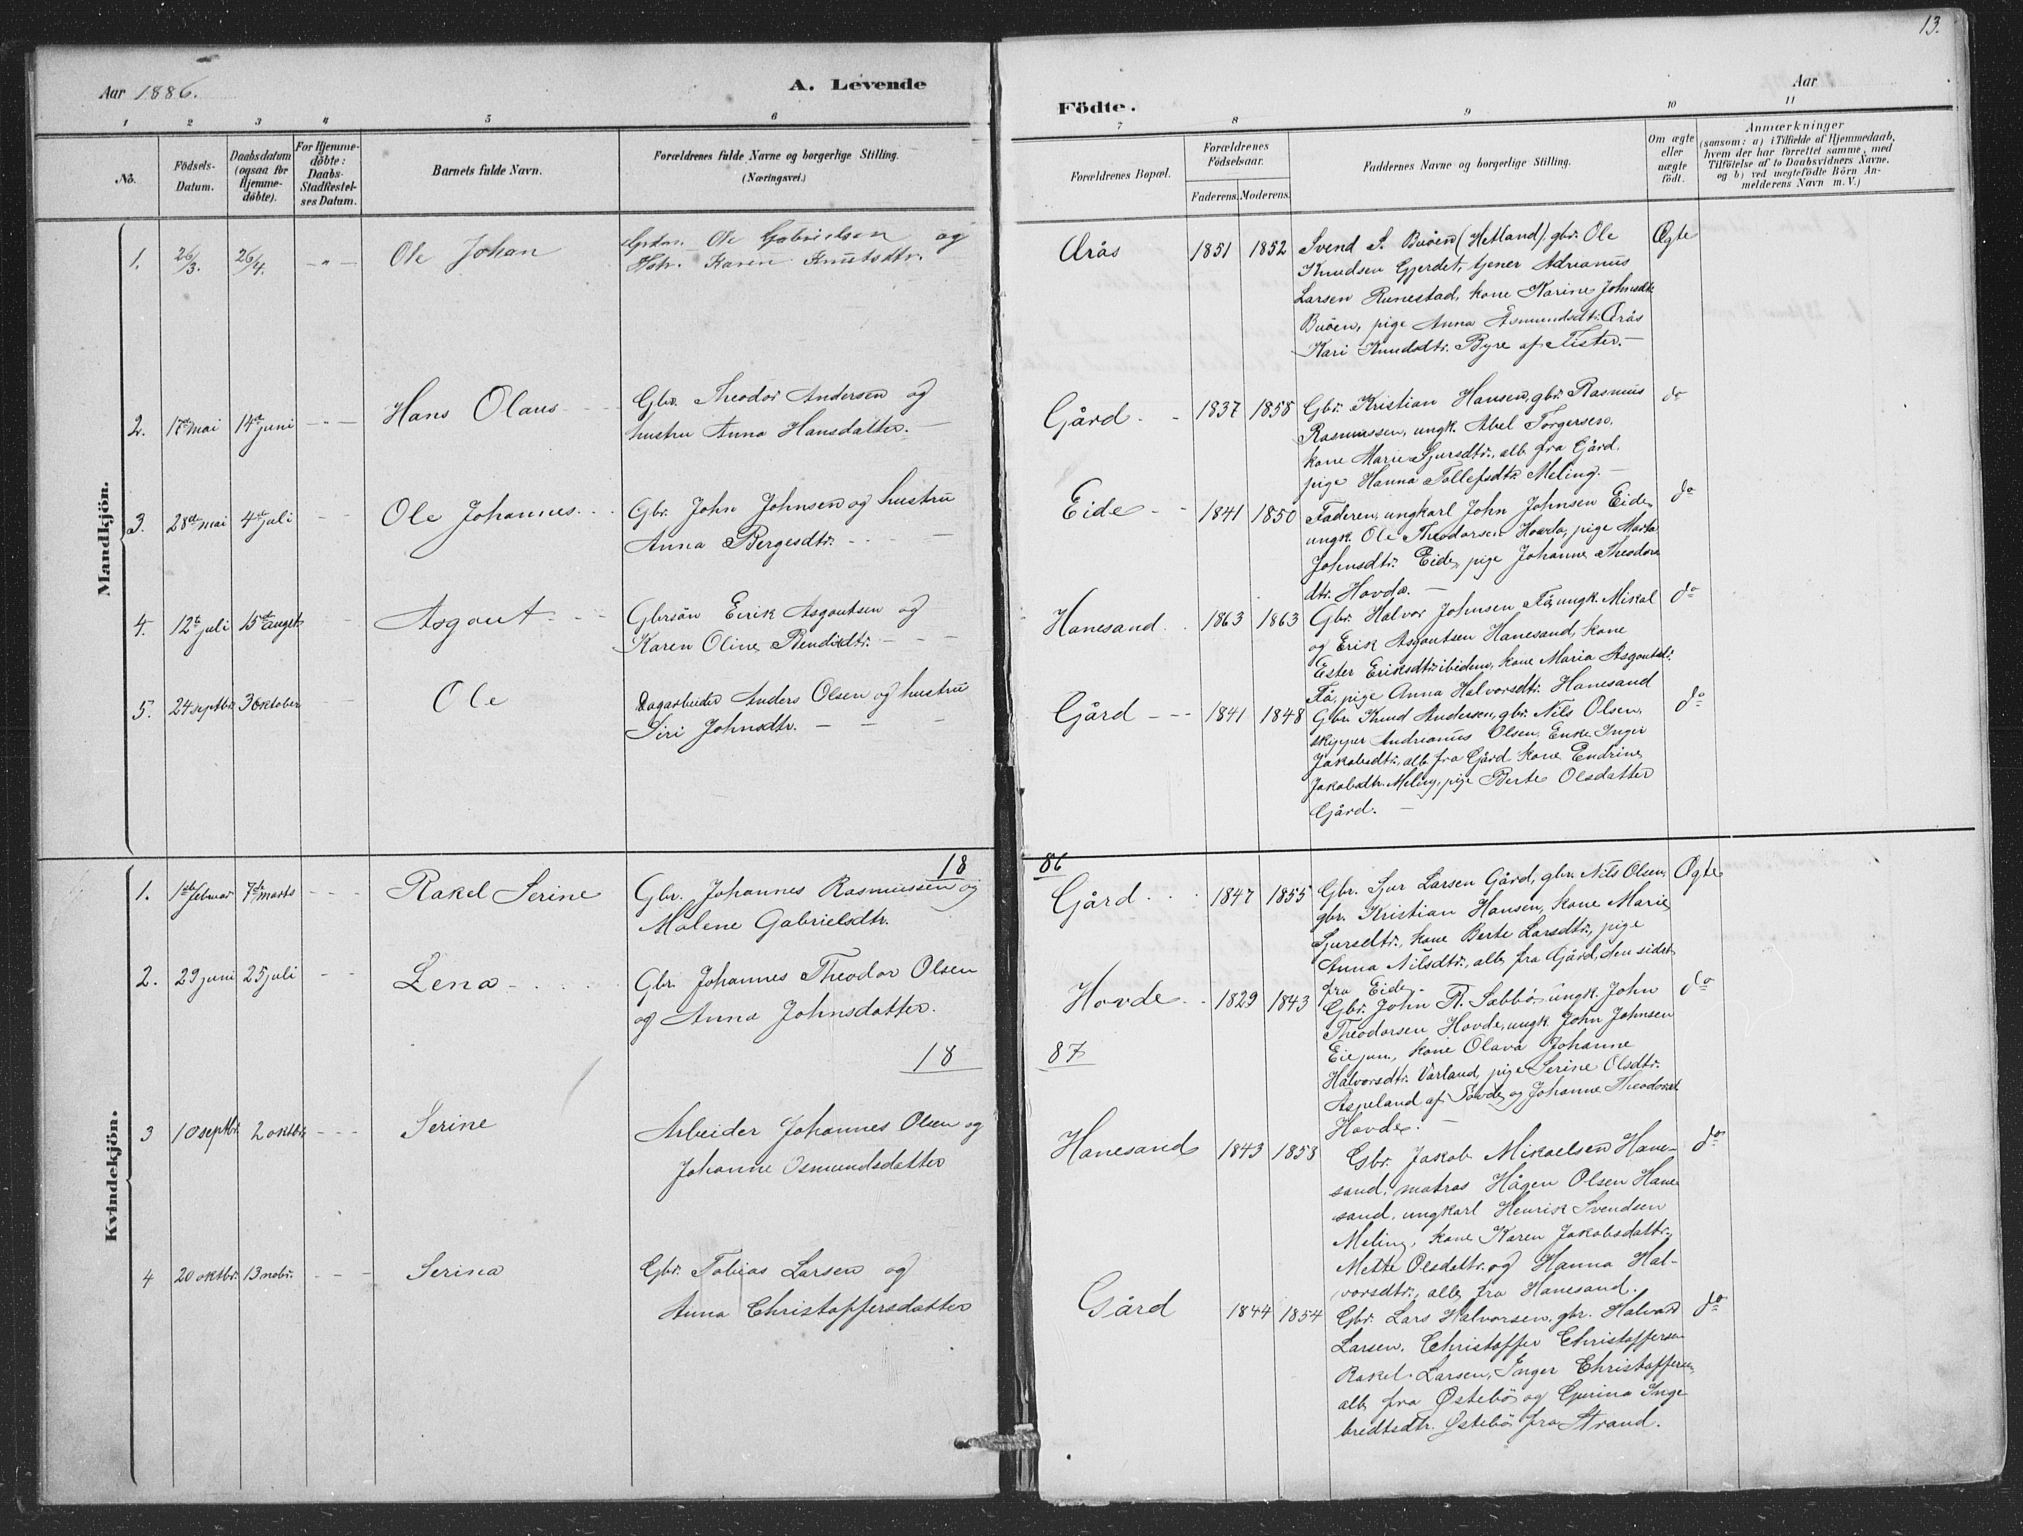 13.
Aar 1886.
A. Levende
Födte.
Aar
1 2 3 4 5 6 7 8 9 10 11
No.
Födsels-
Datum.
Daabsdatum
(ogsaa for
Hjemme-
döbte).
For Hjemme-
döbte:
Daabs-
Stadfæstel-
ses Datum.
Barnets fulde Navn.
Forældrenes fulde Navne og borgerlige Stilling.
(Næringsvei.)
Forældrenes Bopæl.
Forældrenes
Födselsaar.
Faderens. Moderens.
Faddernes Navne og borgerlige Stilling.
Om ægte
eller
uægte
födt.
Anmærkninger
(saasom: a) i Tilfælde af Hjemmedaab,
hvem der har forrettet samme, med
Tilföielse af to Daabsvidners Navne,
og b) ved uægtefödte Börn An-
melderens Navn m.V.)
Mandkjön.
1. 26/3. 26/4. - " - Ole Johan
Gbr. Ole Gabrielsen og
Hstr. Karen Knutsdtr.
Årås 1851 1852
Svend S. Buöen (Hetland), gbr. Ole
Knudsen Gjerdet, tjener Adrianus
Larsen Runestad, kone Karine Johnsdtr.
Buöen, pige Anna Asmundsdtr. Årås
Kari Knudsdtr. Byre af Fister. -
Ægte
2. 17de mai 14de juni - - - Hans Olaus
Gbr. Theodor Andersen og
hustru Anna Hansdatter. -
Gård. - 1837 1858
Gbr. Kristian Hansen, gbr. Rasmus
Rasmussen, ungk. Abel Torgersen,
kone Marie Sjursdtr., alle fra Gård,
pige Hanna Tollefsdtr. Meling. -
do
3. 28de mai 4de juli - - Ole Johannes.
Gbr. John Johnsen og hustru
Anna Bergesdtr. - - -
Eide - - 1841 1850
Faderen, ungkarl John Johnsen Eide,
ungk. Ole Theodorsen Hovda, pige Marta
Johnsdtr. Eide, pige Johanne Theodors
dtr. Hovda. -
do
4. 12te juli 15de augst - - Asgaut - - -
Gbrsön Eirik Asgautsen og
Karen Oline Bendixdtr. - - -
Hanesand. 1863 1863
Gbr. Halvor Johnsen Få, ungk. Mikal
og Erik Asgautsen Hanesand, kone
Ester Eriksdtr. ibidem, kone Maria Asgautsd.
Få, pige Anna Halvorsdtr. Hanesand
do
5. 24 septbr 3 oktober - Ole
Dagarbeider Anders Olsen og hustru
Siri Johnsdtr. - - -
Gård - - - 1841 1848
Gbr. Knud Andersen, gbr. Nils Olsen,
skipper Andrianus Olsen, Enke Inger
Jakobsdtr., alle fra Gård, kone Endrine
Jakobsdtr. Meling, pige Berte Olsdatter
Gård. -
do
Kvindekjön.
18 86
1. 1ste februar 7de marts - - - Rakel Serine
Gbr. Johannes Rasmussen og
Malene Gabrielsdtr.
Gård. 1847 1855
Gbr. Sjur Larsen Gård, gbr. Nils Olsen,
gbr. Kristian Hansen, kone Marie
Sjursdtr., kone Berte Larsdtr., pige
Anna Nilsdtr., alle fra Gård, den sidste
fra Eide. -
Ægte
2. 29 juni 25 juli - - Lena
Gbr. Johannes Theodor Olsen
og Anna Johnsdatter.
Hovde. 1829 1843
Gbr. John R. Sæbbö, ungk. John
Theodorsen Hovde, ungk. John Johnsen
Eiejun., kone Olava Johanne
Halvorsdtr. Varland, pige Serine Olsdtr.
Aspeland af Sovde, og Johanne Theodorsd.
Hovde. -
do
18 87
3 10 septbr. 2 oktbr. - - - Serine
Arbeider Johannes Olsen og
Johanne Osmundsdatter
Hanesand 1843 1853
Gbr. Jakob Mikaelsen Hane-
sand, matros Hågen Olsen Hane
sand, ungkarl Henrik Svendsen
Meling, kone Karen Jakobsdattr.,
Mette Olsdattr. og Hanna Hal-
vorsdtr., alle fra Hanesand.
do
4 20 oktbr. 13 nobr. - - - Serina
Gbr. Tobias Larsen og
Anna Christoffersdatter
Gård 1844 1854
Gbr. Lars Halvorsen, gbr. Halvard
Larsen, Christoffer Christoffersen
Rakel Larsen, Inger Christoffersen,
alle fra Østebö og Gurina Inge
bredtsdtr. Østebö fra Strand.
do